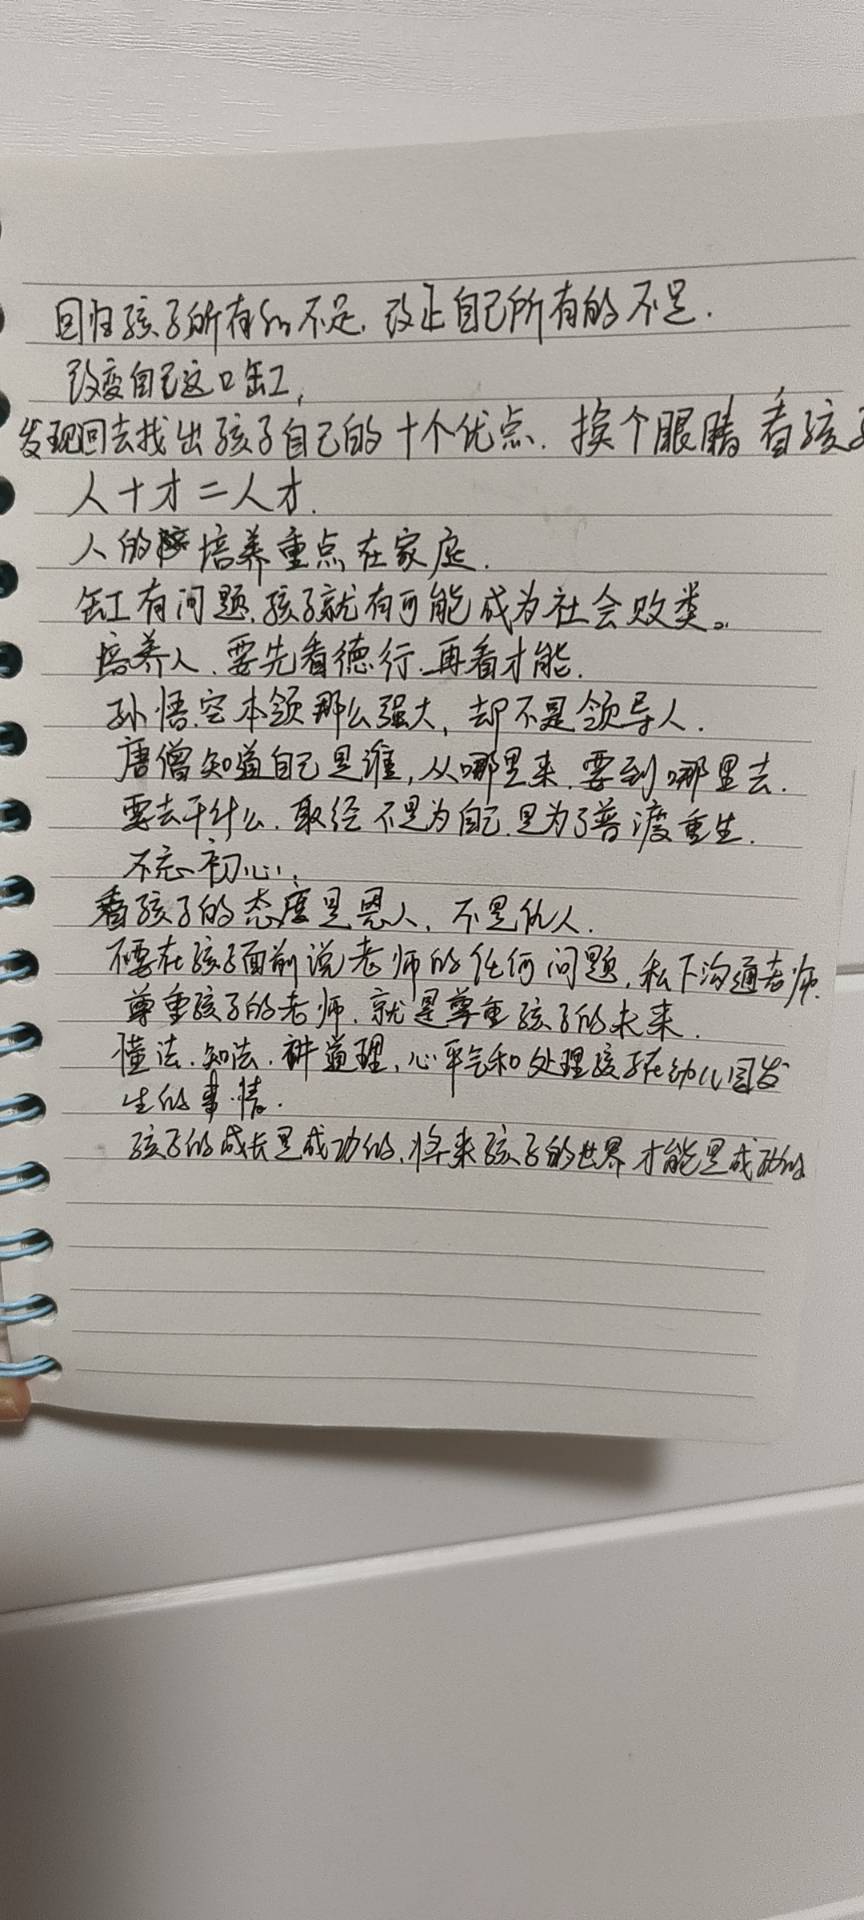 回归孩子所有的不足.改正自己所有的不足.
改变自己这口缸,
发现回去找出孩子自己的十个优点.换个眼睛看孩子
人十才二人才.
人的培养重点在家庭.
缸有问题.孩子就有可能成为社会败类。
培养人.要先看德行.再看才能.
孙悟空本领那么强大,却不是领导人.
唐僧知道自己是谁,从哪里来.要到哪里去.
要去干什么.取经不是为自己.是为了普渡重生.
不忘初心;
看孩子的态度是恩人,不是仇人.
不要在孩子面前说老师的任何问题,私下沟通老师.
尊重孩子的老师.就是尊重孩子的未来.
懂法.知法.讲道理,心平气和处理孩子在幼儿园发
生的事情.
孩子的成长是成功的,将来孩子的世界才能是成功的